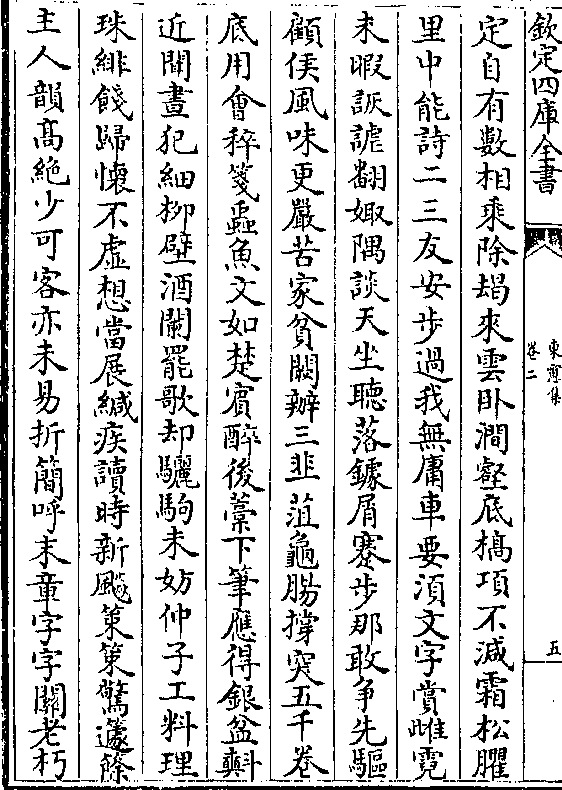 欽定四庫全書
東窻集
卷二
五
定自有數相乘除朅來雲卧澗壑底槁項不減霜松臞
里中能詩二三友安步過我無庸車要湏文字賞雌霓
未暇詼謔翻娵隅談天坐聽落鐻屑蹇步那敢争先驅
顧侯風味更嚴苦家貧闕辦三韭菹龜腸撐突五千卷
底用會稡箋蟲魚文如楚賔醉後藁下筆應得銀盆㪺
近聞晝犯細柳壁酒闌罷歌却驪駒未妨仲子工料理
珠緋餞歸懷不虚想當展緘疾讀時新颸策策驚籧篨
主人韻髙絶少可客亦未易折簡呼末章字字關老朽